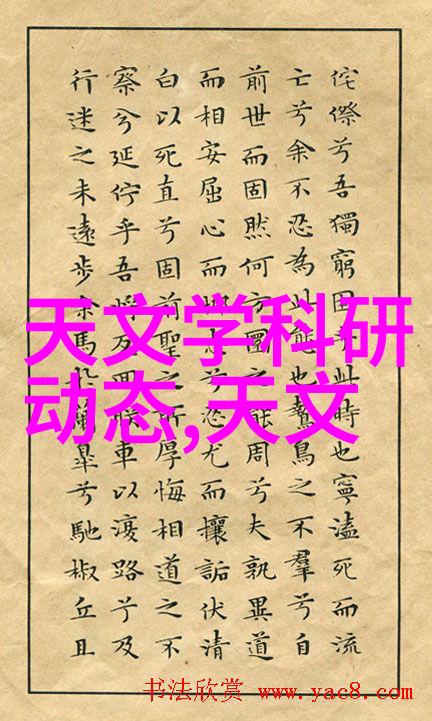 侘傺兮吾獨窮困乎此時也寧溘死而流
亡兮余不忍為此態也鷙鳥之不羣兮自
前世而固然何方圜之能周兮夫孰異道
而相安屈心而志兮尤而攘詬伏清
白以死直兮固前聖之所厚悔相道之不
察兮延佇乎吾將反回朕車以復路兮及
行迷之未遠步余馬於蘭皋兮馳椒丘且
天文学科研
动态,天文
书法欣赏 www.yac8.com